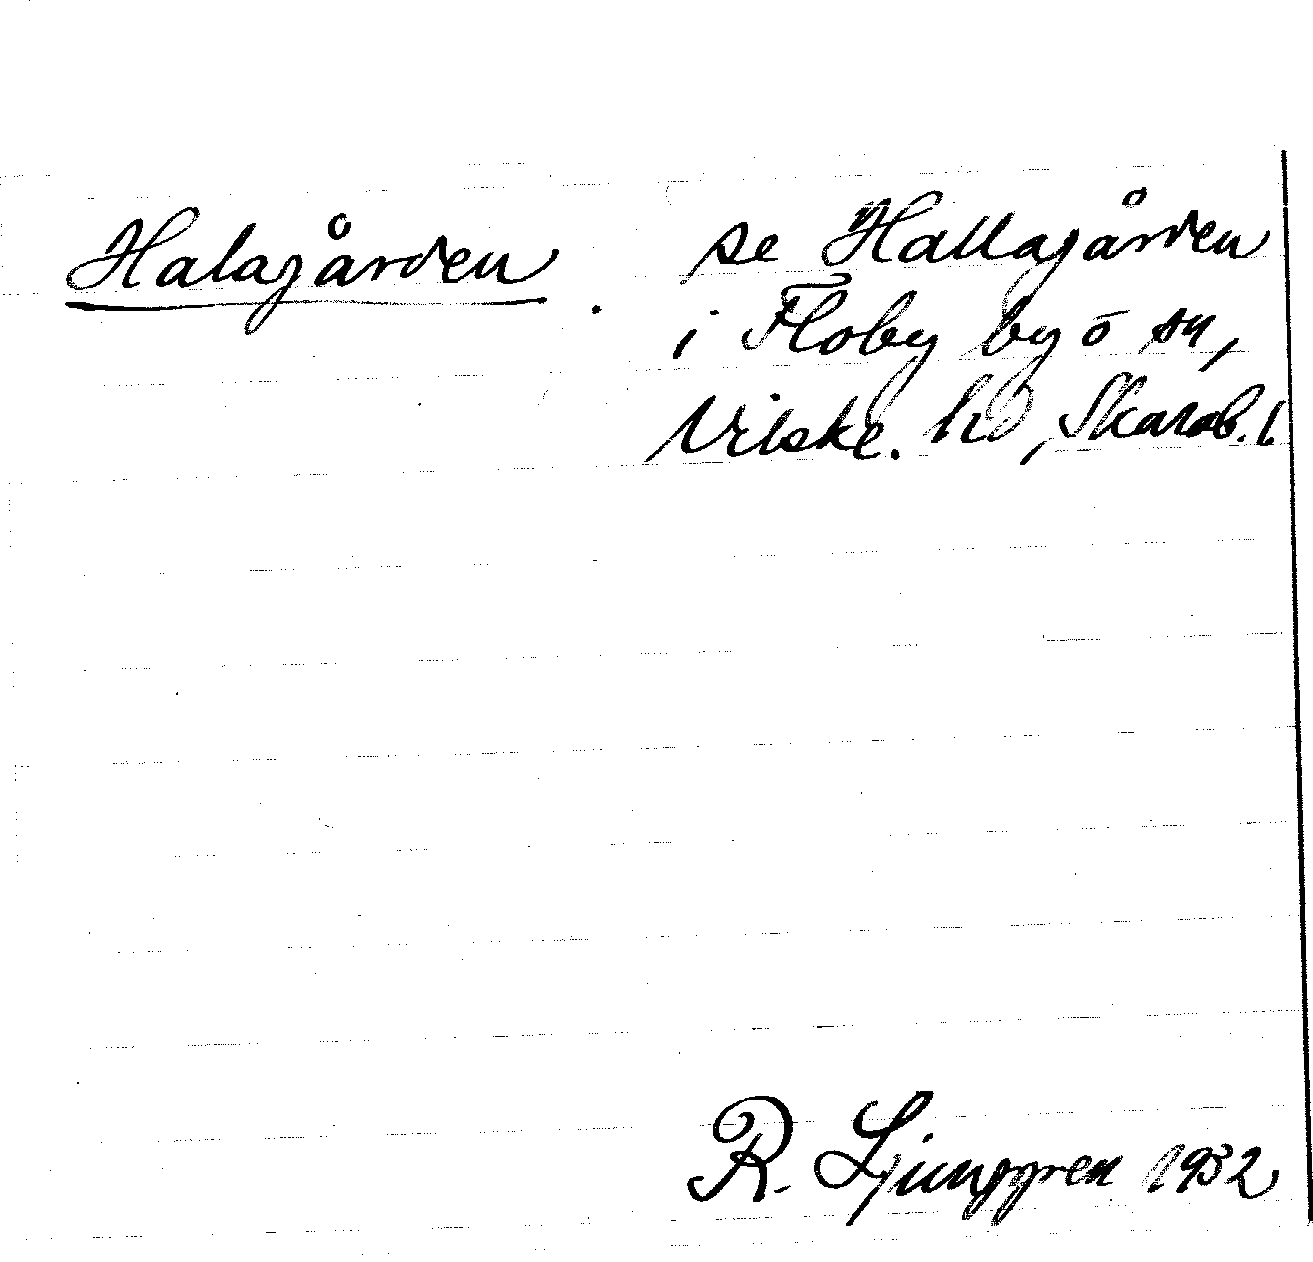 Halagården. se Hallagården
i Floby by o sn,
Vilske. hd, Skarab. l
R. Ljunggren 1932